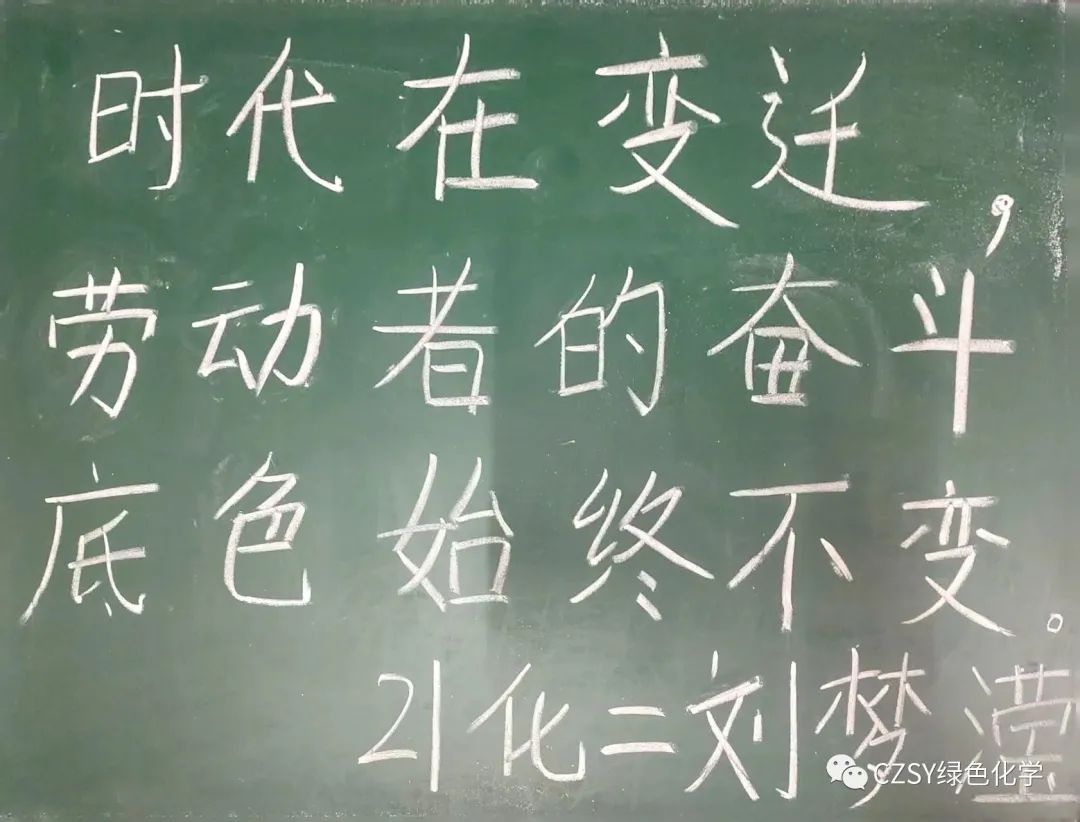 时代在变迁，
劳动者的奋斗
底色始终不变。
21化二刘梦滢
CZSY绿色化学